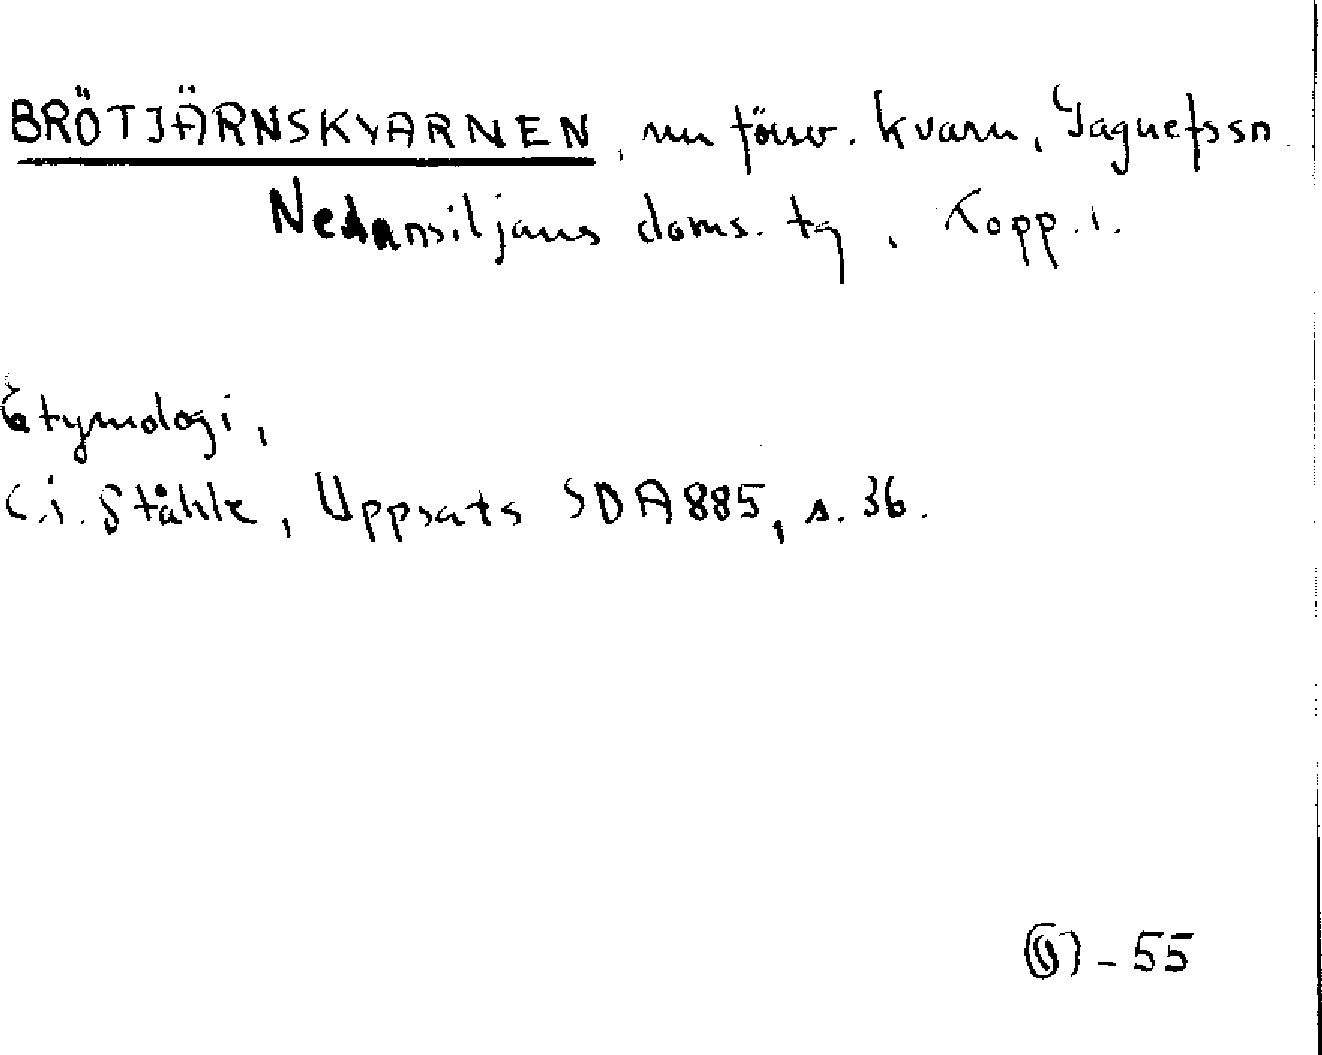 BRÖTJÄRNSKVARNEN, nu försv. kvarn, Gagnefs sn
Nedansiljans doms. tg, Kopp. l.
Etymologi,
C.I. Ståhle, Uppsats SDA 885, s. 36.
- 55